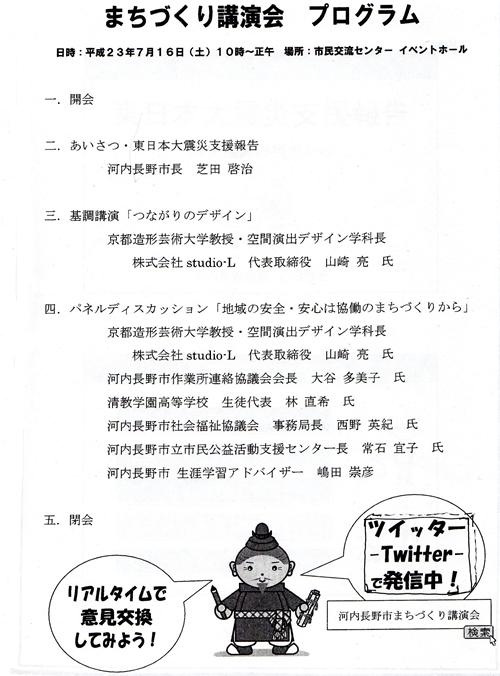 まちづくり講演会　プログラム
日時：平成２３年７月１６日（土）１０時～正午　場所：市民交流センター イベントホール
一．開会
二．あいさつ・東日本大震災支援報告
河内長野市長　芝田 啓治
三．基調講演「つながりのデザイン」
京都造形芸術大学教授・空間演出デザイン学科長
株式会社 studio-L　代表取締役　山崎 亮　氏
四．パネルディスカッション「地域の安全・安心は協働のまちづくりから」
京都造形芸術大学教授・空間演出デザイン学科長
株式会社 studio-L　代表取締役　山崎 亮　氏
河内長野市作業所連絡協議会会長　大谷 多美子　氏
清教学園高等学校　生徒代表　林 直希　氏
河内長野市社会福祉協議会　事務局長　西野 英紀　氏
河内長野市立市民公益活動支援センター長　常石 宜子　氏
河内長野市 生涯学習アドバイザー　嶋田 崇彦
五．閉会
リアルタイムで
意見交換
してみよう！
ツイッター
-Twitter-
で発信中！
河内長野市まちづくり講演会
検索